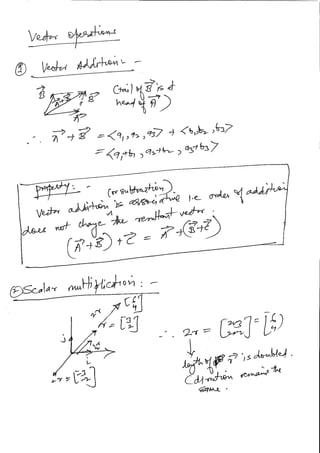 Vector operations
① Vector Addition: -
(tail of B⃗ is at
head of A⃗)
B⃗ A⃗+B⃗ B⃗
A⃗
∴ A⃗ + B⃗ = <a₁, a₂, a₃> + <b₁, b₂, b₃>
= <a₁+b₁, a₂+b₂, a₃+b₃>
property: -
(or subtraction)
Vector addition is associative i.e order of addition
does not change the resultant vector.
(A⃗+B⃗) + C⃗ = A⃗ + (B⃗+C⃗)
② Scalar multiplication: -
2r [6 4]
r = [3 2]
j
i
-r = [-3 -2]
∴ 2r = [2*3 2*2] = [6 4]
length of r⃗ is doubled.
(direction remains the
same.